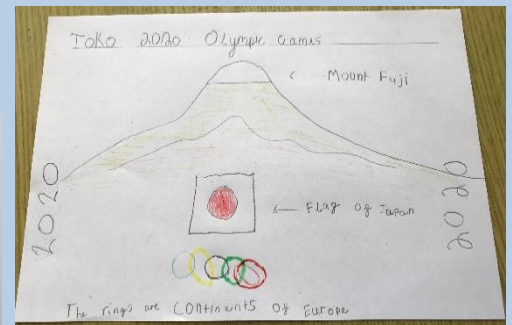 Toko 2020 Olympic Games
Mount Fuji
2020
2020
Flag of Japan
The rings are continents of Europe